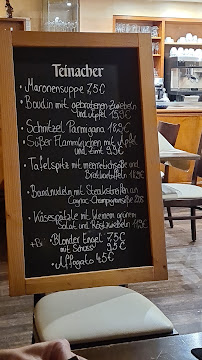 Teinacher
Maronensuppe 7,5€
Boudin mit gebratenen Zwiebeln
und Apfel 15,9€
Schnitzel Parmigiana 18,9€
Süßer Flammkuchen mit Apfel
und Zimt 9,9€
Tafelspitz mit Meerrettichsoße und
Bratkartoffeln 18,9€
Bandnudeln mit Steakstreifen an
Cognac-Champignonsoße 20,8
Käsespätzle mit kleinem grünem
Salat und Röstzwiebeln
Blonder Engel 7,5€
mit Schuss 9,5€
Affogato 4,5€